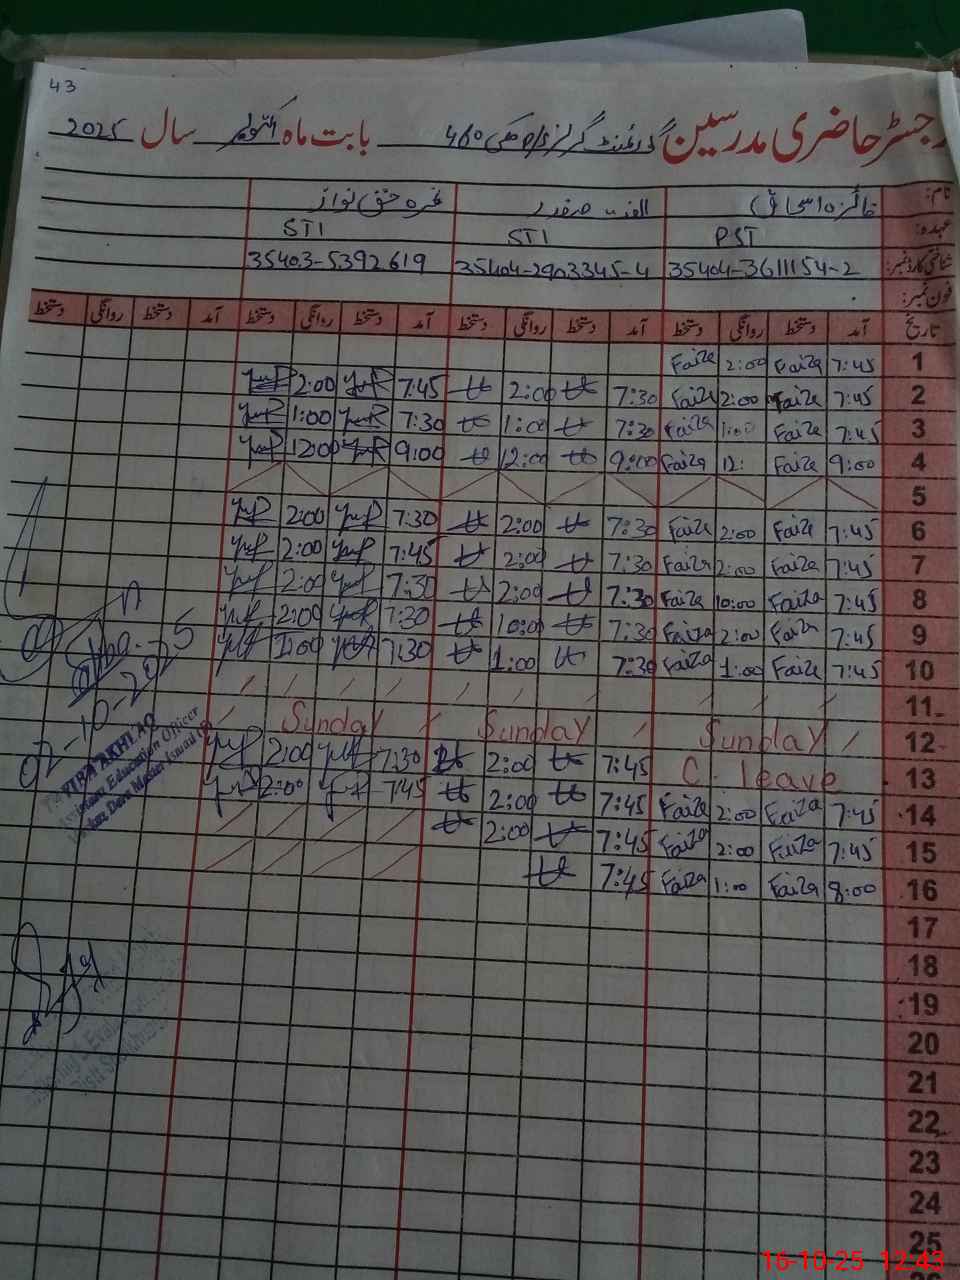 43
رجسٹر حاضری مدرسین گورنمنٹ گرلز 460 بابت ماہ اکتوبر سال 2025
نام: فائزہ اسحاق الفت صفدر نواز
عہدہ: PST STI STI
شناختی کارڈ نمبر: 35404-3611154-2 35404-2903345-4 35403-5392619
فون نمبر:
تاریخ آمد دستخط روانگی دستخط آمد دستخط روانگی دستخط آمد دستخط روانگی دستخط آمد دستخط روانگی دستخط
1 7:45 Faiza 2:00 Faiza
2 7:45 Faiza 2:00 Faiza 7:30 2:00 7:45 2:00
3 7:45 Faiza 1:00 Faiza 7:30 1:00 7:30 1:00
4 9:00 Faiza 12: Faiza 9:00 12:00 9:00 12:00
5
6 7:45 Faiza 2:00 Faiza 7:30 2:00 7:30 2:00
7 7:45 Faiza 2:00 Faiza 7:30 2:00 7:45 2:00
8 7:45 Faiza 10:00 Faiza 7:30 2:00 7:30 2:00
9 7:45 Faiza 2:00 Faiza 7:30 10:00 7:30 2:00
10 7:45 Faiza 1:00 Faiza 7:30 1:00 7:30 1:00
11
12 Sunday Sunday Sunday
13 C. leave 7:45 2:00 7:30 2:00
14 7:45 Faiza 2:00 Faiza 7:45 2:00 7:45 2:00
15 7:45 Faiza 2:00 Faiza 7:45 2:00
16 8:00 Faiza 1:00 Faiza 7:45
17
18
19
20
21
22
23
24
25
AKHLAQ
Assistant Education Officer
16-10-25 12:43